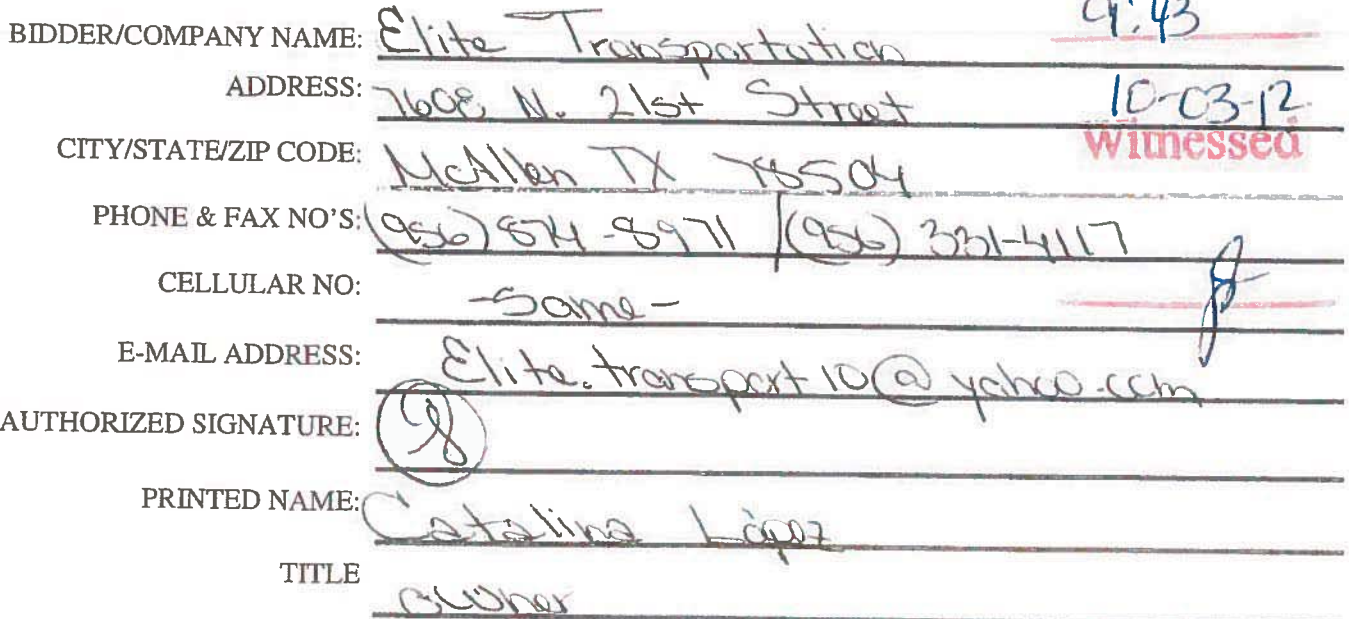 9:43
BIDDER/COMPANY NAME: Elite Transportation
ADDRESS: 7608 N. 21st Street
10-03-12
CITY/STATE/ZIP CODE: McAllen TX 78504
Witnessed
PHONE & FAX NO'S: (956) 874-8971 / (956) 331-4117
CELLULAR NO: -Same-
E-MAIL ADDRESS: Elite.transport10@yahoo.com
AUTHORIZED SIGNATURE:
PRINTED NAME: Catalina López
TITLE owner